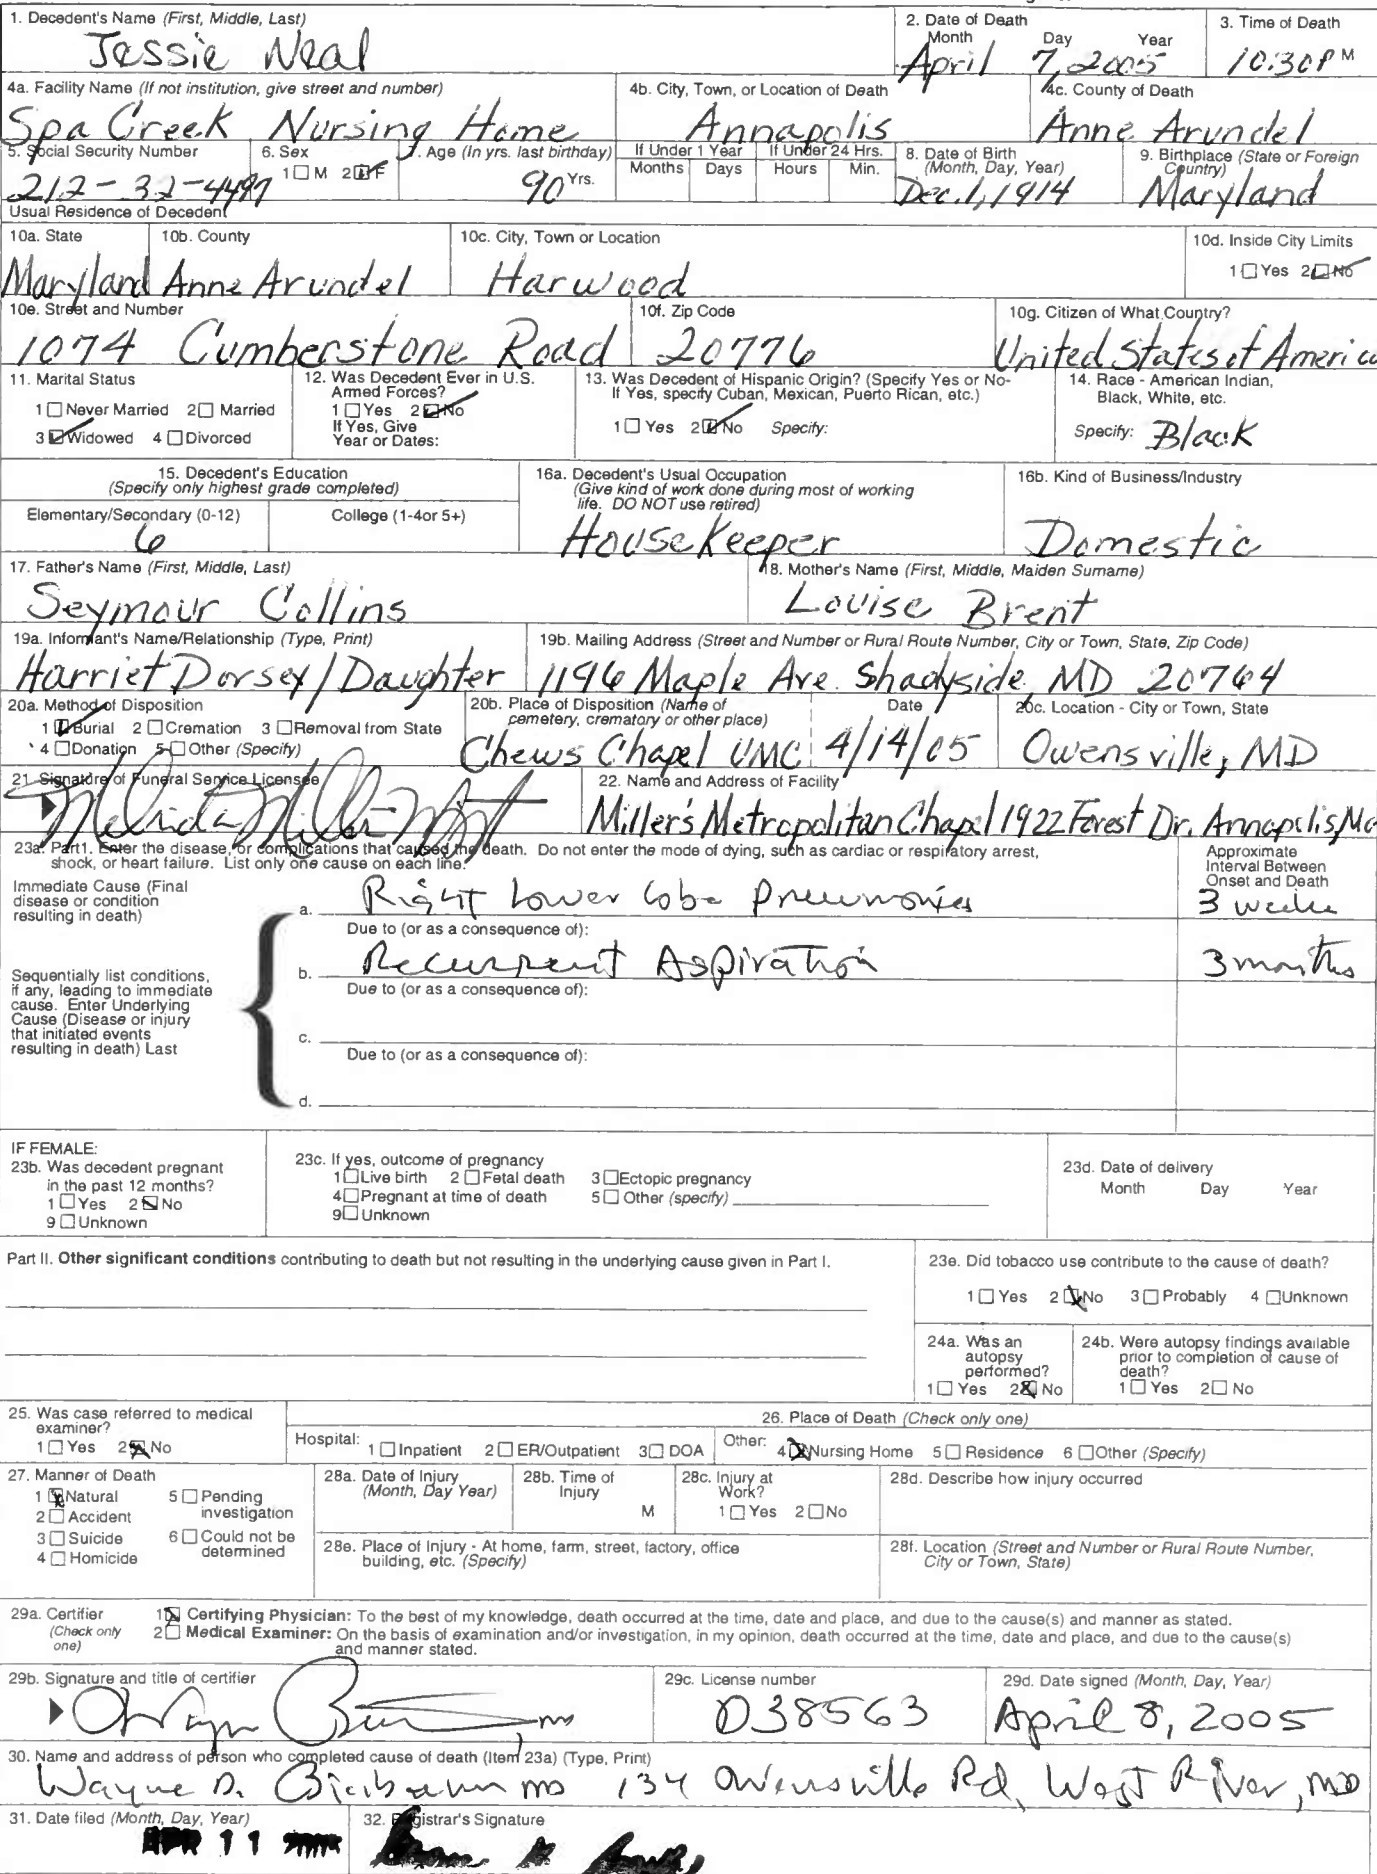 1. Decedent's Name (First, Middle, Last)
Jessie Neal
2. Date of Death
Month Day Year
April 7, 2005
3. Time of Death
10:30P M
4a. Facility Name (If not institution, give street and number)
Spa Creek Nursing Home
4b. City, Town, or Location of Death
Annapolis
4c. County of Death
Anne Arundel
5. Social Security Number
212-32-4497
6. Sex
1 ☐ M 2 ☑ F
7. Age (In yrs. last birthday)
90 Yrs.
If Under 1 Year
Months Days
If Under 24 Hrs.
Hours Min.
8. Date of Birth
(Month, Day, Year)
Dec. 1, 1914
9. Birthplace (State or Foreign
Country)
Maryland
Usual Residence of Decedent
10a. State
Maryland
10b. County
Anne Arundel
10c. City, Town or Location
Harwood
10d. Inside City Limits
1 ☐ Yes 2 ☑ No
10e. Street and Number
1074 Cumberstone Road
10f. Zip Code
20776
10g. Citizen of What Country?
United States of America
11. Marital Status
1 ☐ Never Married 2 ☐ Married
3 ☑ Widowed 4 ☐ Divorced
12. Was Decedent Ever in U.S.
Armed Forces?
1 ☐ Yes 2 ☑ No
If Yes, Give
Year or Dates:
13. Was Decedent of Hispanic Origin? (Specify Yes or No-
If Yes, specify Cuban, Mexican, Puerto Rican, etc.)
1 ☐ Yes 2 ☑ No Specify:
14. Race - American Indian,
Black, White, etc.
Specify: Black
15. Decedent's Education
(Specify only highest grade completed)
Elementary/Secondary (0-12)
6
College (1-4or 5+)
16a. Decedent's Usual Occupation
(Give kind of work done during most of working
life. DO NOT use retired)
HouseKeeper
16b. Kind of Business/Industry
Domestic
17. Father's Name (First, Middle, Last)
Seymour Collins
18. Mother's Name (First, Middle, Maiden Surname)
Louise Brent
19a. Informant's Name/Relationship (Type, Print)
Harriet Dorsey/Daughter
19b. Mailing Address (Street and Number or Rural Route Number, City or Town, State, Zip Code)
1196 Maple Ave. Shadyside, MD 20764
20a. Method of Disposition
1 ☑ Burial 2 ☐ Cremation 3 ☐ Removal from State
4 ☐ Donation 5 ☐ Other (Specify)
20b. Place of Disposition (Name of
cemetery, crematory or other place)
Chews Chapel UMC
Date
4/14/05
20c. Location - City or Town, State
Owensville, MD
21. Signature of Funeral Service Licensee
22. Name and Address of Facility
Miller's Metropolitan Chapel 1922 Forest Dr. Annapolis, Md
23a. Part1. Enter the disease, or complications that caused the death. Do not enter the mode of dying, such as cardiac or respiratory arrest,
shock, or heart failure. List only one cause on each line.
Approximate
Interval Between
Onset and Death
Immediate Cause (Final
disease or condition
resulting in death)
a. Right Lower lobe Pneumonia
3 weeks
Due to (or as a consequence of):
Sequentially list conditions,
if any, leading to immediate
cause. Enter Underlying
Cause (Disease or injury
that initiated events
resulting in death) Last
b. Recurrent Aspiration
3 months
Due to (or as a consequence of):
c.
Due to (or as a consequence of):
d.
IF FEMALE:
23b. Was decedent pregnant
in the past 12 months?
1 ☐ Yes 2 ☑ No
9 ☐ Unknown
23c. If yes, outcome of pregnancy
1 ☐ Live birth 2 ☐ Fetal death 3 ☐ Ectopic pregnancy
4 ☐ Pregnant at time of death 5 ☐ Other (specify)
9 ☐ Unknown
23d. Date of delivery
Month Day Year
Part II. Other significant conditions contributing to death but not resulting in the underlying cause given in Part I.
23e. Did tobacco use contribute to the cause of death?
1 ☐ Yes 2 ☑ No 3 ☐ Probably 4 ☐ Unknown
24a. Was an
autopsy
performed?
1 ☐ Yes 2 ☒ No
24b. Were autopsy findings available
prior to completion of cause of
death?
1 ☐ Yes 2 ☐ No
25. Was case referred to medical
examiner?
1 ☐ Yes 2 ☒ No
26. Place of Death (Check only one)
Hospital: 1 ☐ Inpatient 2 ☐ ER/Outpatient 3 ☐ DOA Other: 4 ☒ Nursing Home 5 ☐ Residence 6 ☐ Other (Specify)
27. Manner of Death
1 ☒ Natural 5 ☐ Pending
investigation
2 ☐ Accident
3 ☐ Suicide 6 ☐ Could not be
determined
4 ☐ Homicide
28a. Date of Injury
(Month, Day Year)
28b. Time of
Injury
M
28c. Injury at
Work?
1 ☐ Yes 2 ☐ No
28d. Describe how injury occurred
28e. Place of Injury - At home, farm, street, factory, office
building, etc. (Specify)
28f. Location (Street and Number or Rural Route Number,
City or Town, State)
29a. Certifier
(Check only
one)
1 ☒ Certifying Physician: To the best of my knowledge, death occurred at the time, date and place, and due to the cause(s) and manner as stated.
2 ☐ Medical Examiner: On the basis of examination and/or investigation, in my opinion, death occurred at the time, date and place, and due to the cause(s)
and manner stated.
29b. Signature and title of certifier
29c. License number
D38563
29d. Date signed (Month, Day, Year)
April 8, 2005
30. Name and address of person who completed cause of death (Item 23a) (Type, Print)
Wayne D. MD 134 Owensville Rd, West River, MD
31. Date filed (Month, Day, Year)
APR 11
32. Registrar's Signature